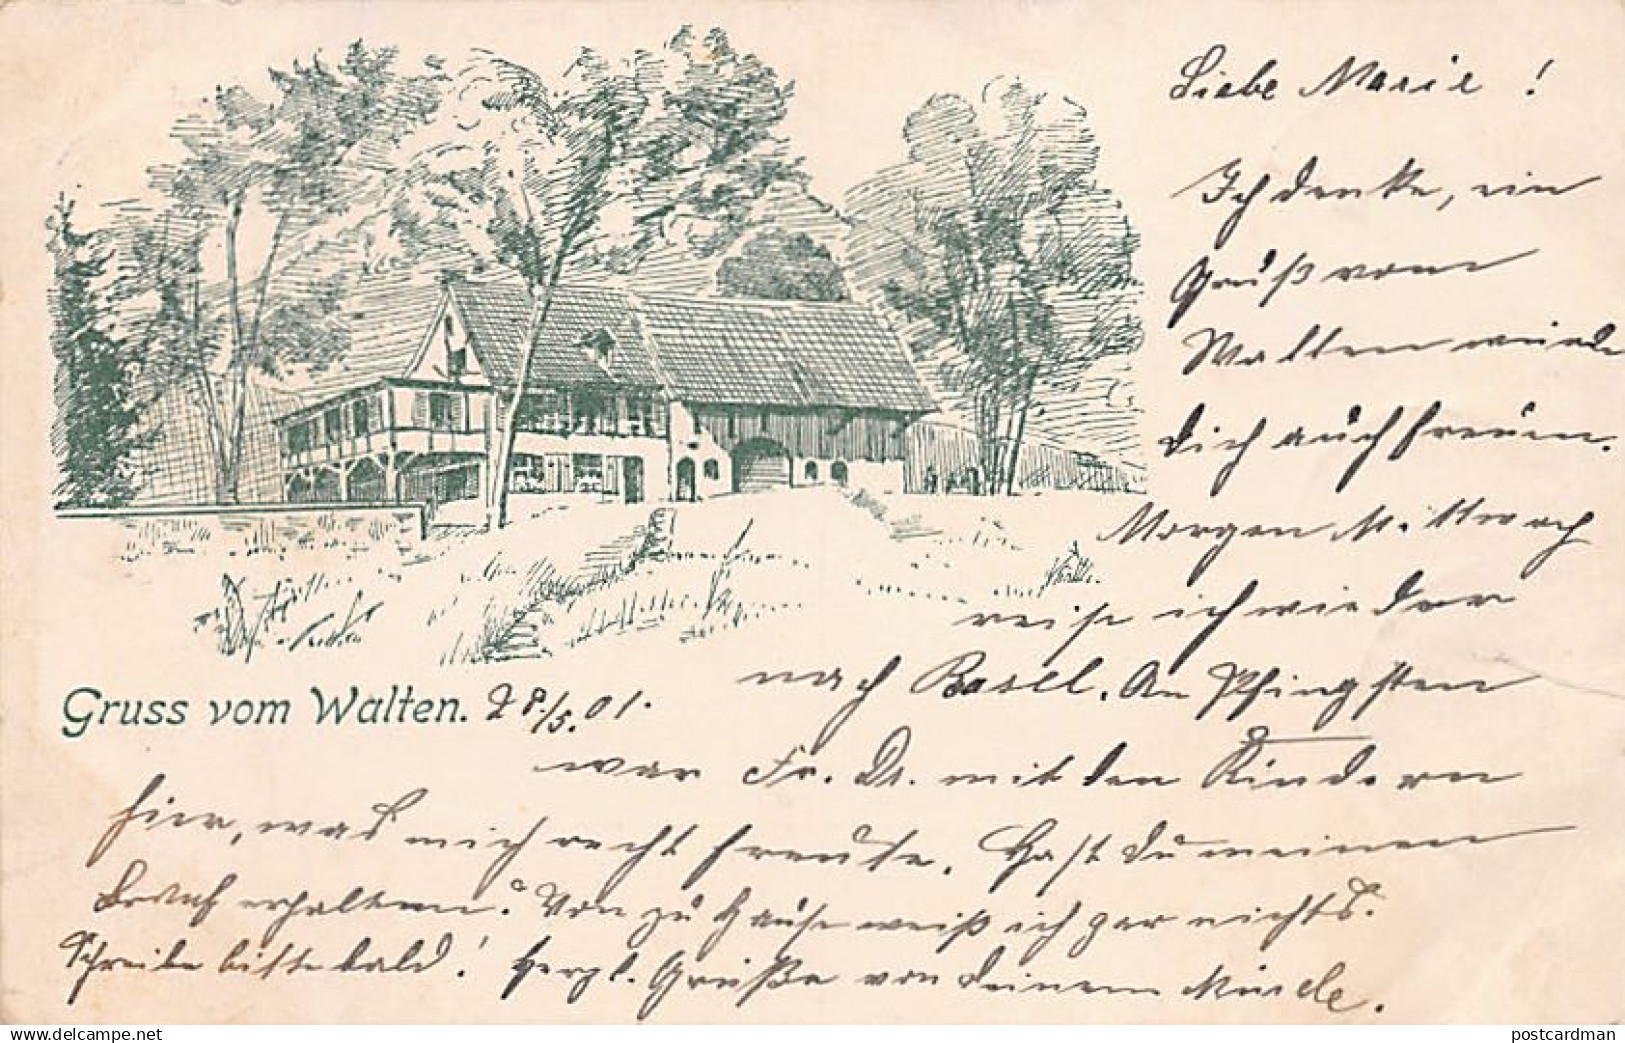 Liebe Marie!
Ich denke, ein
Gruß vom
Walten würde
Dich auch freuen.
Morgen Mittwoch
reise ich wieder
nach Basel. An Pfingsten
Gruss vom Walten. 28./5.01.
war Fr. Dr. mit den Kindern
hier, was mich recht freute. Hast Du meinen
Brief erhalten? Von zu Hause weiß ich gar nichts.
Schreibe bitte bald! Herzl. Grüße von Deinem
www.delcampe.net
postcardman